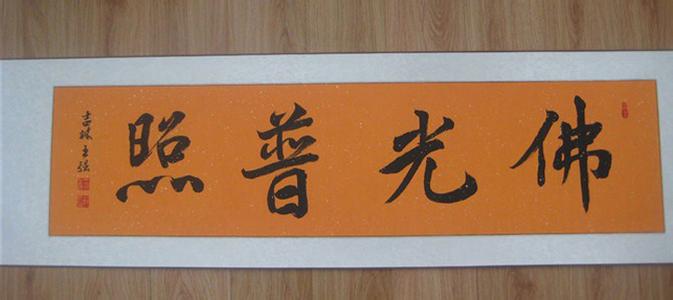 佛光普照
吉林王强